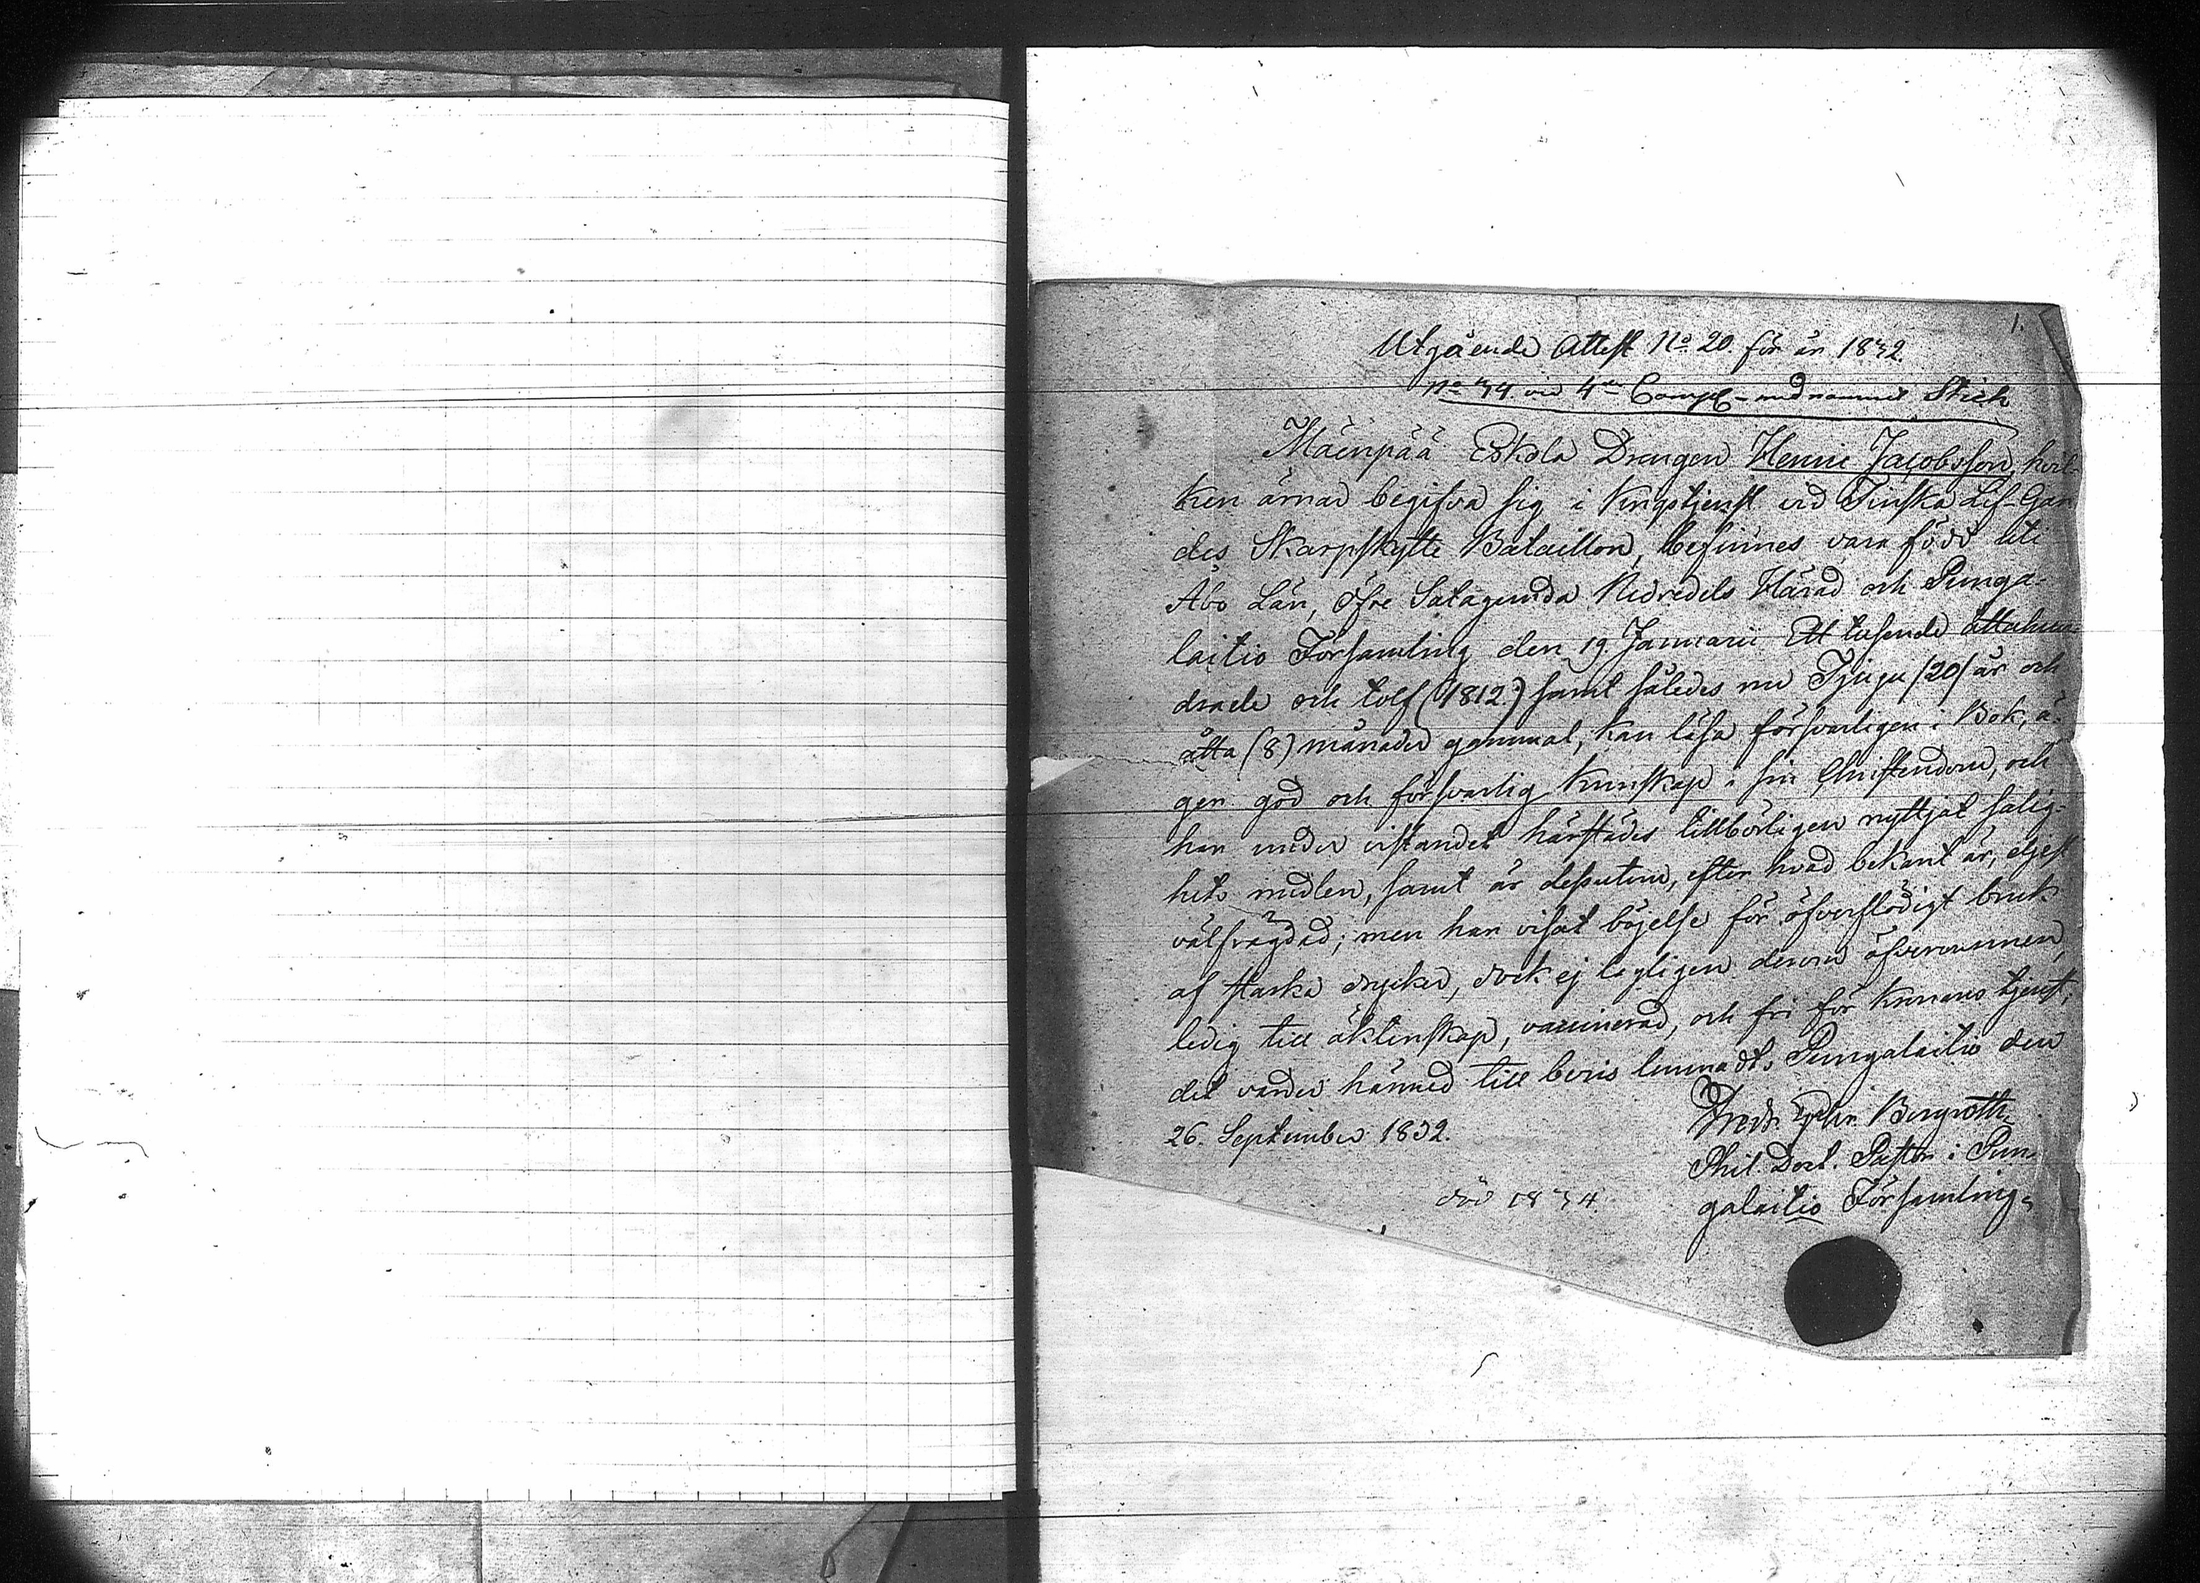 1.
Utgående Attest No. 20. för år 1832.
No 34 vid 4de Comp med namnet Stick
Mäenpää Eskola Drengen Henric Jacobsson, hvil-
ken ärnar begifva sig i Krigstjenst vid Finska Lif-Gar
des Skarpskytte Bataillon, befinnes vara född uti
Åbo Län, Öfre Satagunda Nedredels Härad och Punga-
laitio Församling den 19 Januarii Ett tusende åttahun-
drade och tolf (1812.) samt således nu Tjugu /20/ år och
åtta (8) månader gammal, kan läsa försvarligen i Bok, ä-
ger god och försvarlig kunskap i sin Christendom, och
har under vistandet härstädes tillbörligen nyttjat salig-
hets medlen, samt är dessutom, efter hvad bekant är, eljest
välfrägdad; men har visat böjelse för öfverflödigt bruk
af starka drycker, dock ej lagligen derom öfvervunnen,
ledig till äktenskap, vaccinerad, och fri för Kronans tjenst,
det varder härmed till bevis lemnadt. Pungalaitio den
26. September 1832.
Bergroth
Phil. Doct. Pastor i Pun-
galaitio Församling.
död 1834.